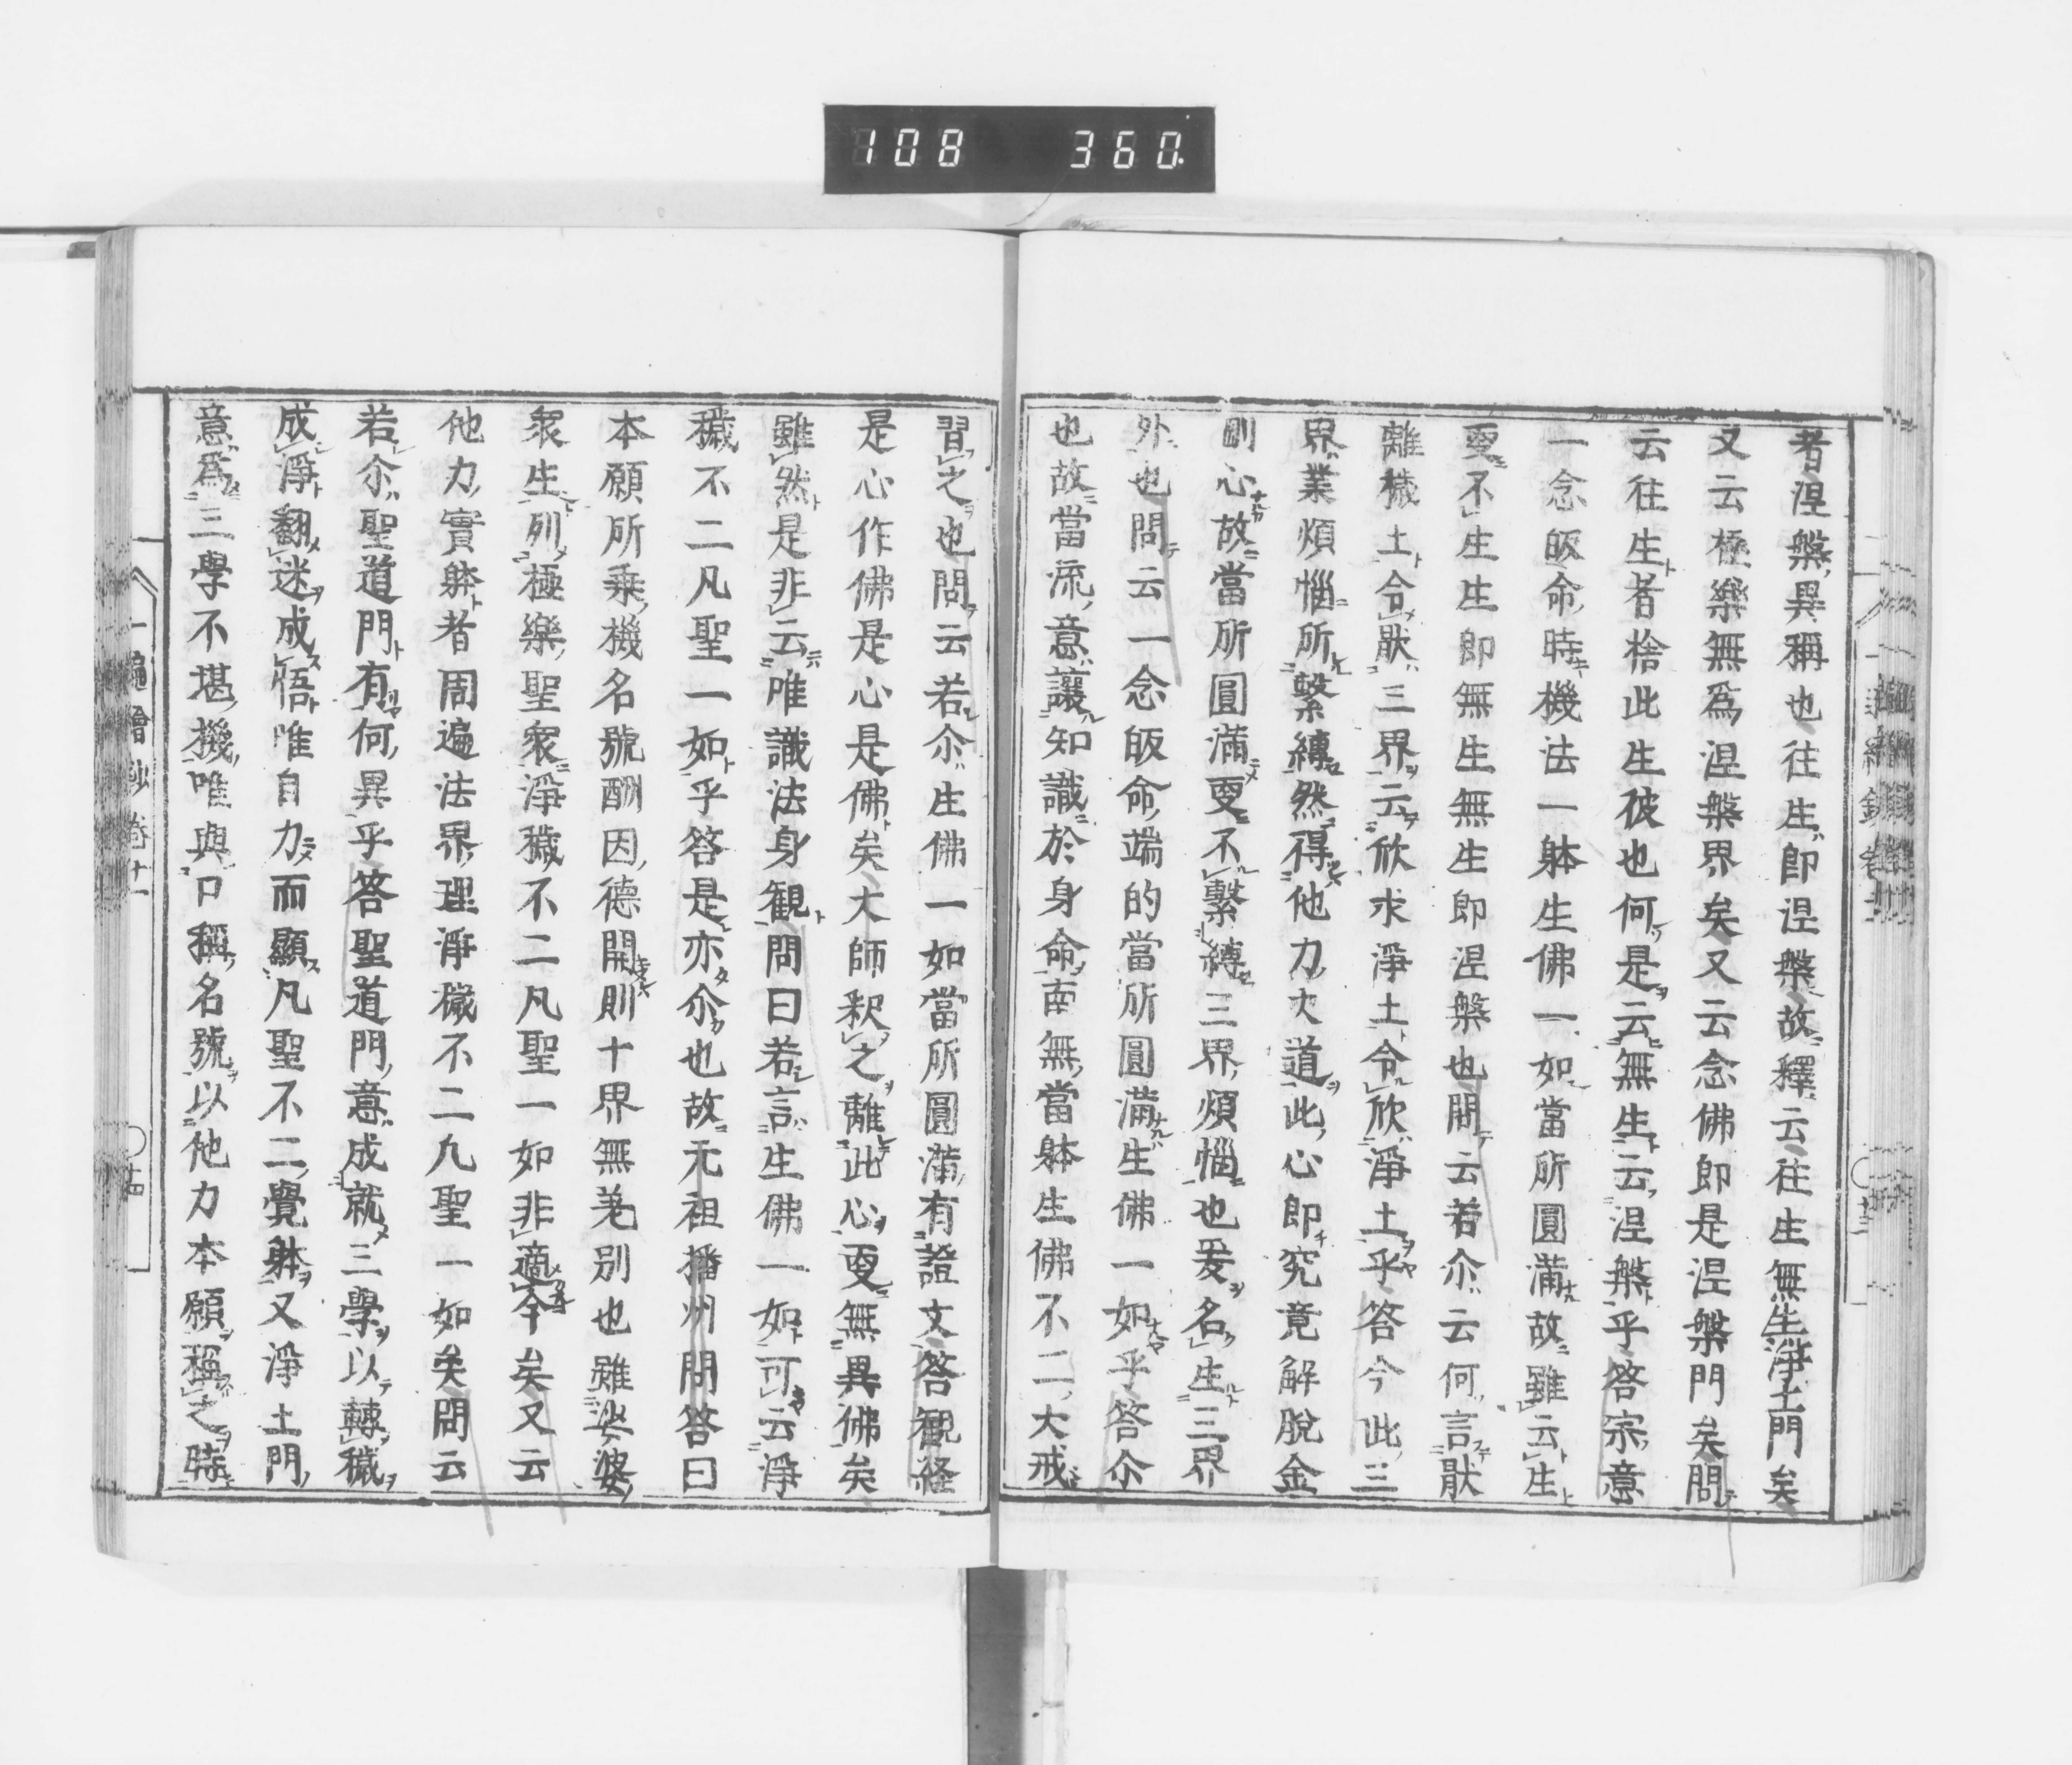 108 360
者涅槃異稱也往生即涅槃故釋云往生無生淨土門矣
又云極樂無爲涅槃界矣又云念佛即是涅槃門矣問
云往生者捨此生彼也何是云無生云涅槃乎答宗意
一念皈命時機法一躰生佛一如當所圓滿故雖云生
更不生生即無生無生即涅槃也問云若尒云何言猒
離穢土令猒三界云欣求淨土令欣淨土乎答今此三
界業煩惱所繫縛然得他力大道此心即究竟解脱金
剛心故當所圓滿更不繫縛三界煩惱也爰名生三界
外也問云一念皈命端的當所圓滿生佛一如乎答尒
也故當流意讓知識於身命南無當躰生佛不二大戒
習之也問云若尒生佛一如當所圓滿有證文答観経
是心作佛是心是佛矣大師釈之離此心更無異佛矣
雖然是非云唯識法身観問曰若言生佛一如可云淨
穢不二凡聖一如乎答是亦尒也故元祖播州問答曰
本願所乗機名號酬因德開則十界無差別也雖娑婆
衆生列極樂聖衆淨穢不二凡聖一如非適今矣又云
他力實躰者周遍法界理淨穢不二九聖一如矣問云
若尒聖道門有何異乎答聖道門意成就三學以轉穢
成淨翻迷成悟唯自力而顯凡聖不二覺躰又淨土門
意爲三學不堪機唯與口稱名號以他力本願稱之時
一遍繪鈔卷十一 十四